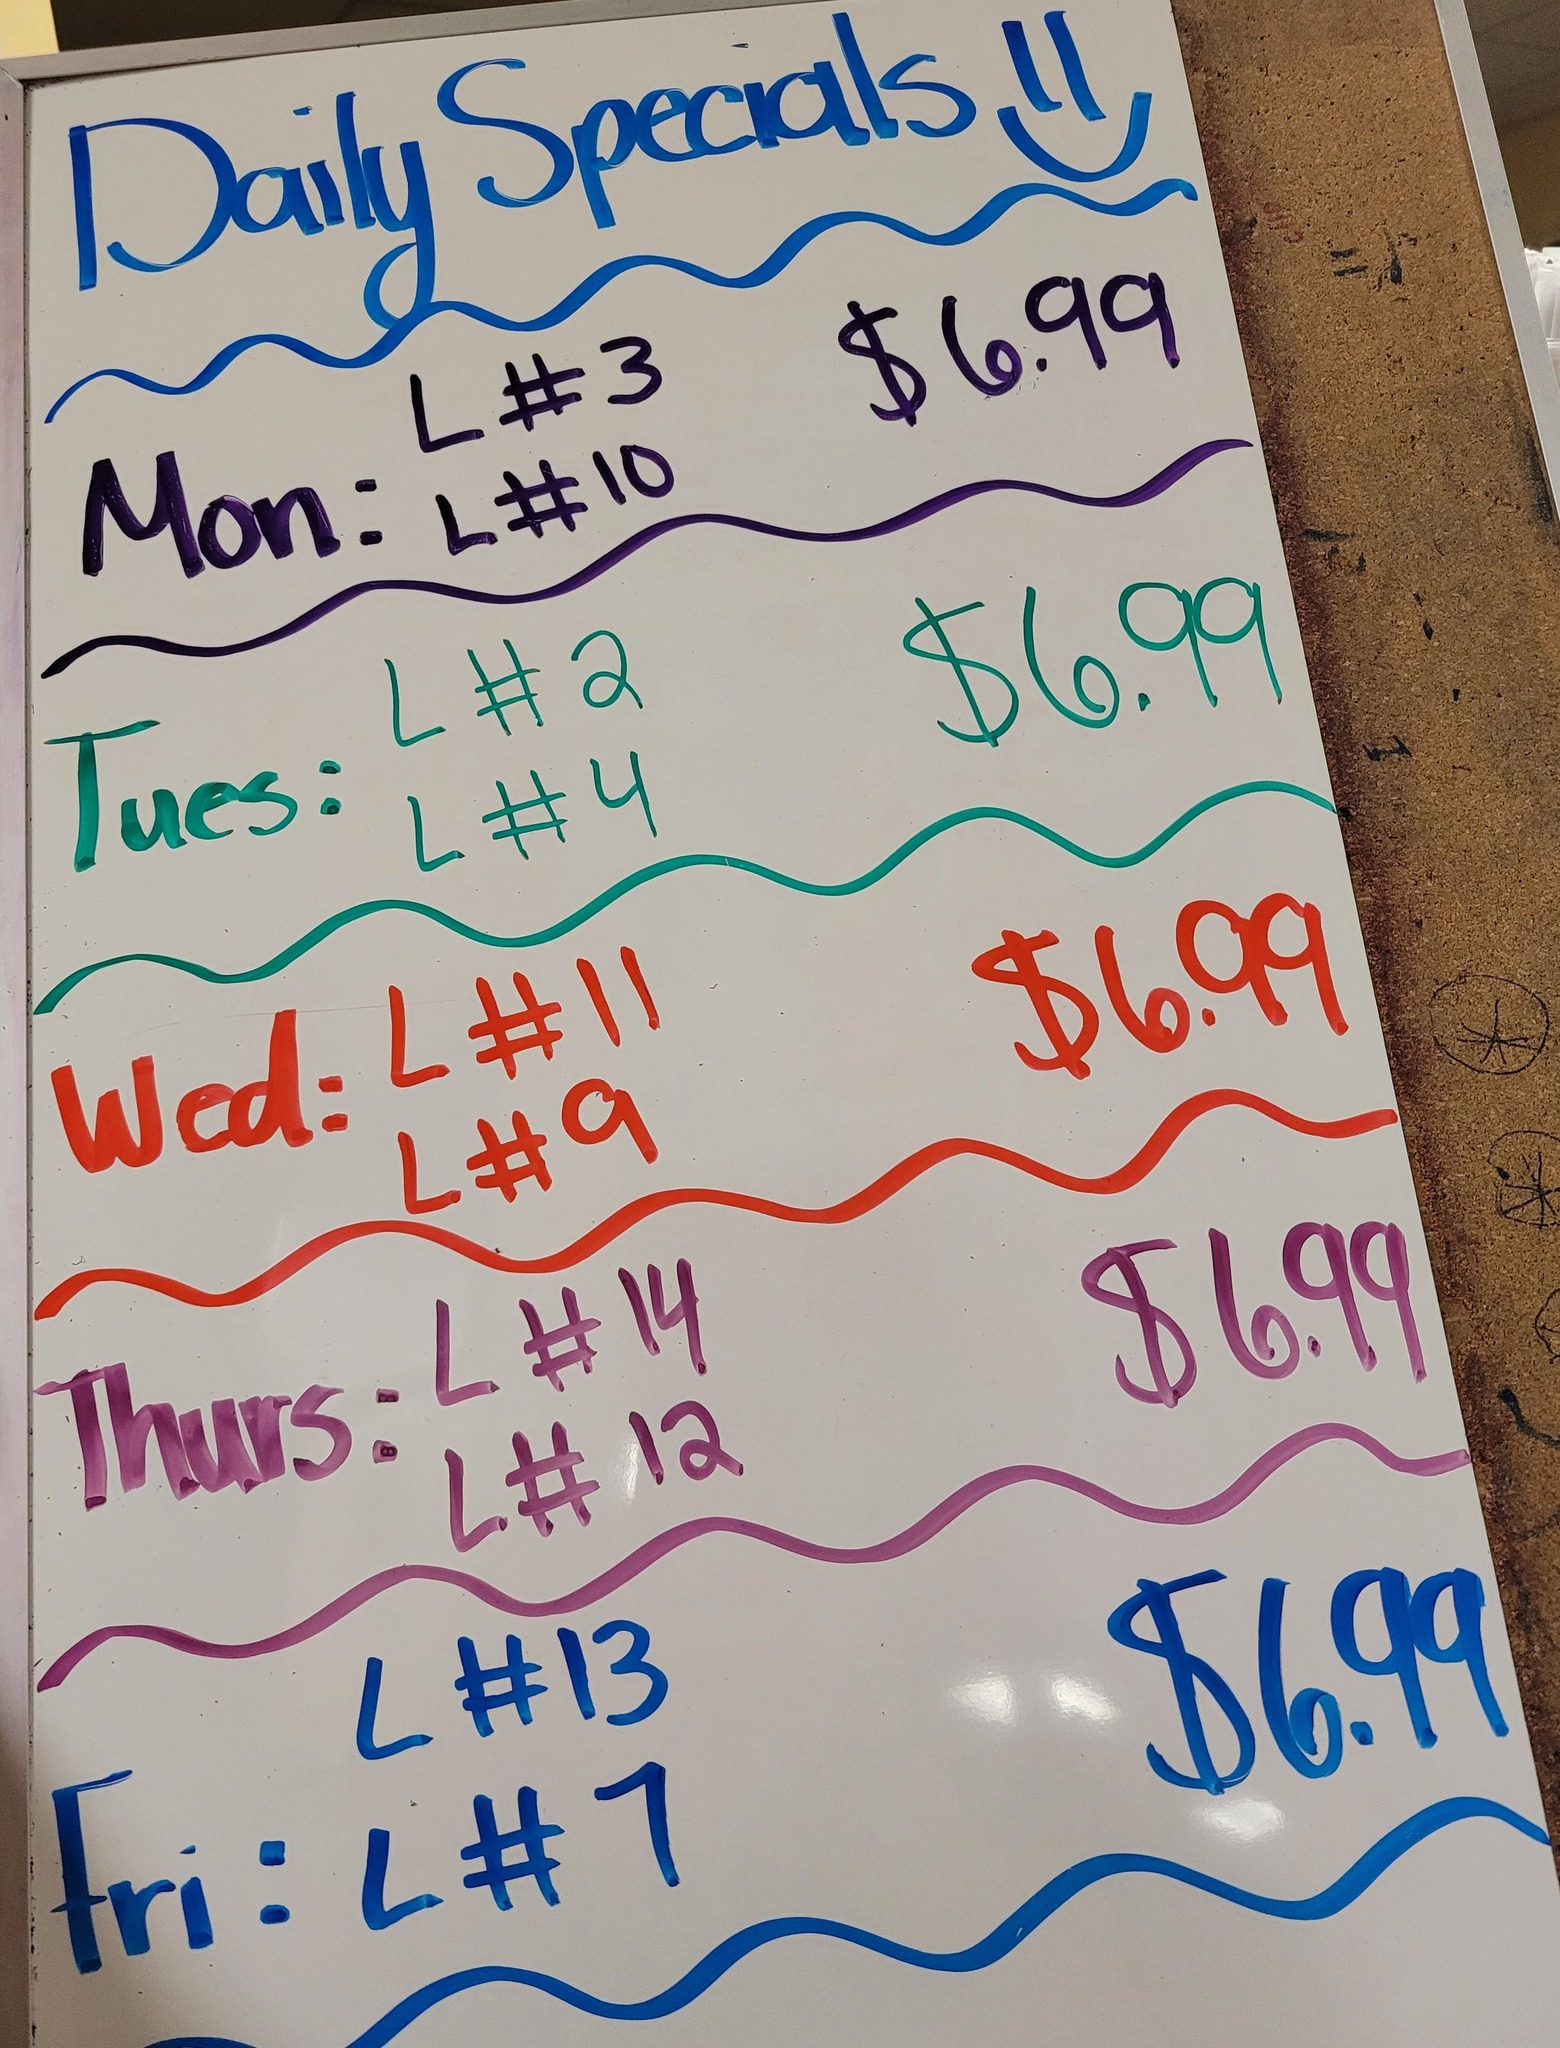 Daily Specials !!
L #3 $6.99
Mon: L #10
L # 2 $6.99
Tues: L # 4
L #11 $6.99
Wed: L #9
L # 14 $6.99
Thurs: L # 12
L #13 $6.99
Fri: L # 7